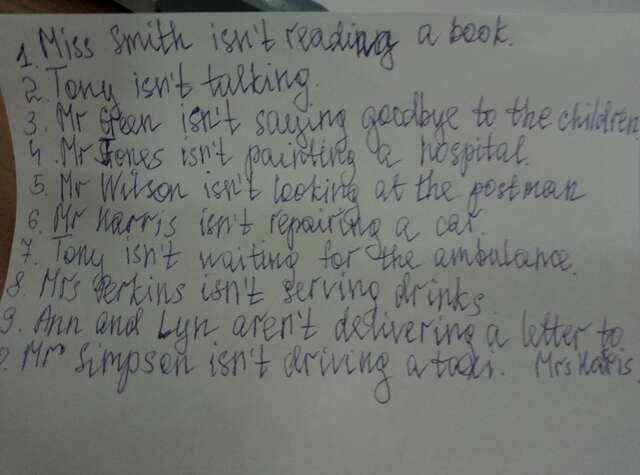 1. Miss Smith isn't reading a book.
2. Tony isn't talking.
3. Mr Green isn't saying goodbye to the children
4. Mr Jones isn't painting a hospital.
5. Mr Wilson isn't looking at the postman
6. Mr Harris isn't repairing a car.
7. Tony isn't waiting for the ambulance.
8. Mrs Perkins isn't serving drinks.
9. Ann and Lyn aren't delivering a letter to
Mr Simpson isn't driving a taxi. Mrs Harris.